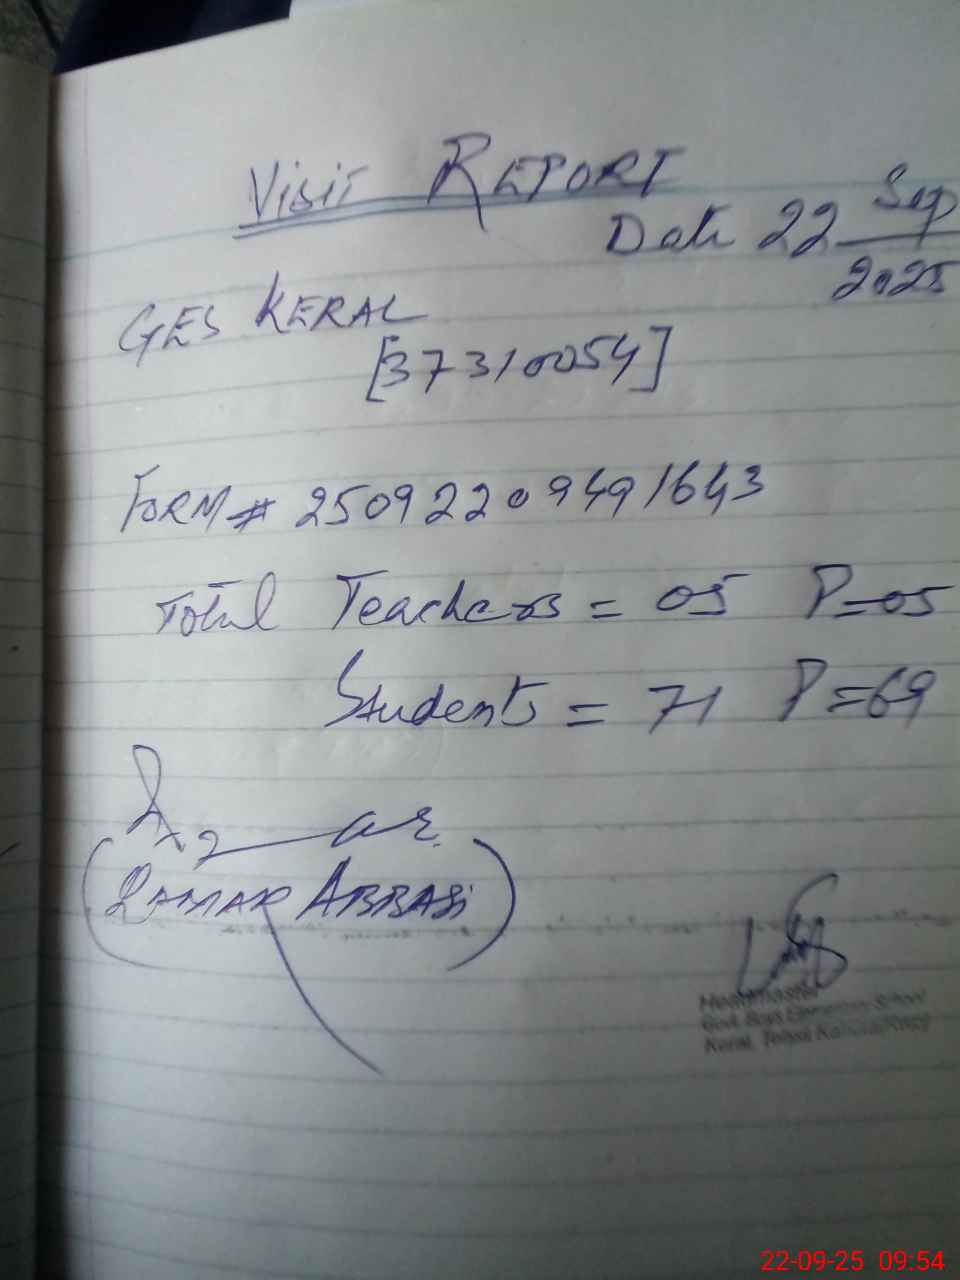 VISIT REPORT
Date 22 Sep
2025
GES KERAL
[37310054]
FORM # 25092209491643
Total Teachers = 05 P=05
Students = 71 P=69
(QAMAR ABBASI)
Headmaster
Govt. Boys Elementary School
Keral, Tehsil
22-09-25 09:54